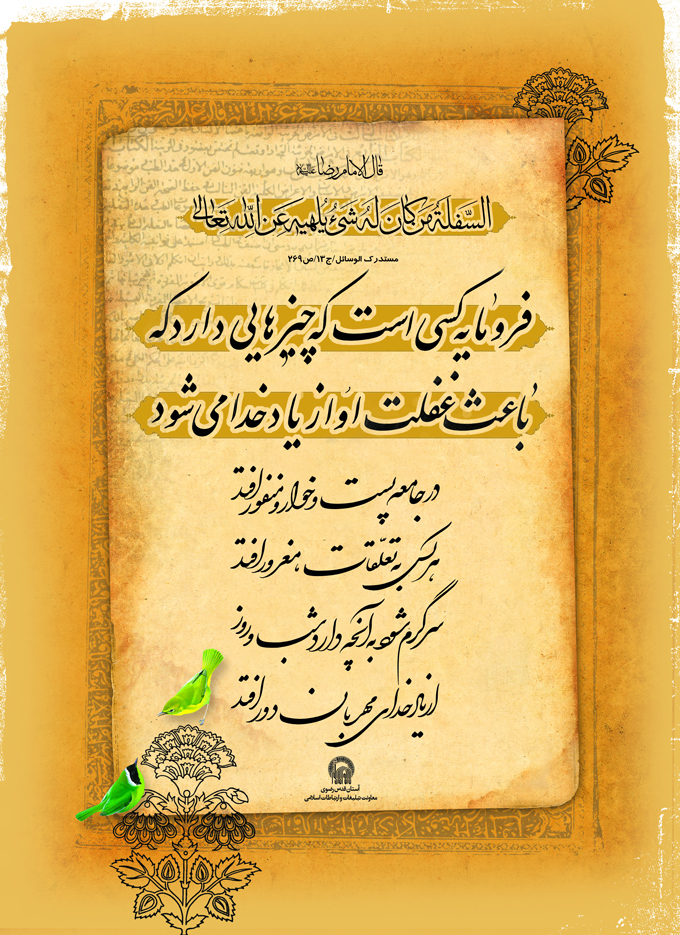 قال الامام رضا علیه‌السلام
السَّفلَةُ مَن کانَ لَهُ شَیءٌ یُلهیهِ عَنِ اللّٰهِ تَعالیٰ
مستدرک الوسائل/ج۱۳/ص۲۶۹
فرومایه کسی است که چیزهایی دارد که
باعث غفلت او از یاد خدا می شود
در جامعه پست و خوار و منفور افتد
هر کس به تعلّقات مغرور افتد
سرگرم شود به آنچه دارد شب و روز
از یاد خدای مهربان دور افتد
آستان قدس رضوی
معاونت تبلیغات و ارتباطات اسلامی